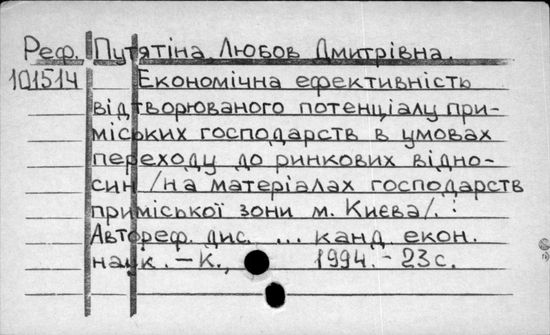 Реф. Путятіна Любов Дмитрівна.
101514 Економічна ефективність
відтворюваного потенціалу при-
міських господарств в умовах
переходу до ринкових відно-
син /на матеріалах господарств
приміської зони м. Києва/. :
Автореф. дис. ... канд. екон.
наук. – К., 1994. – 23 с.